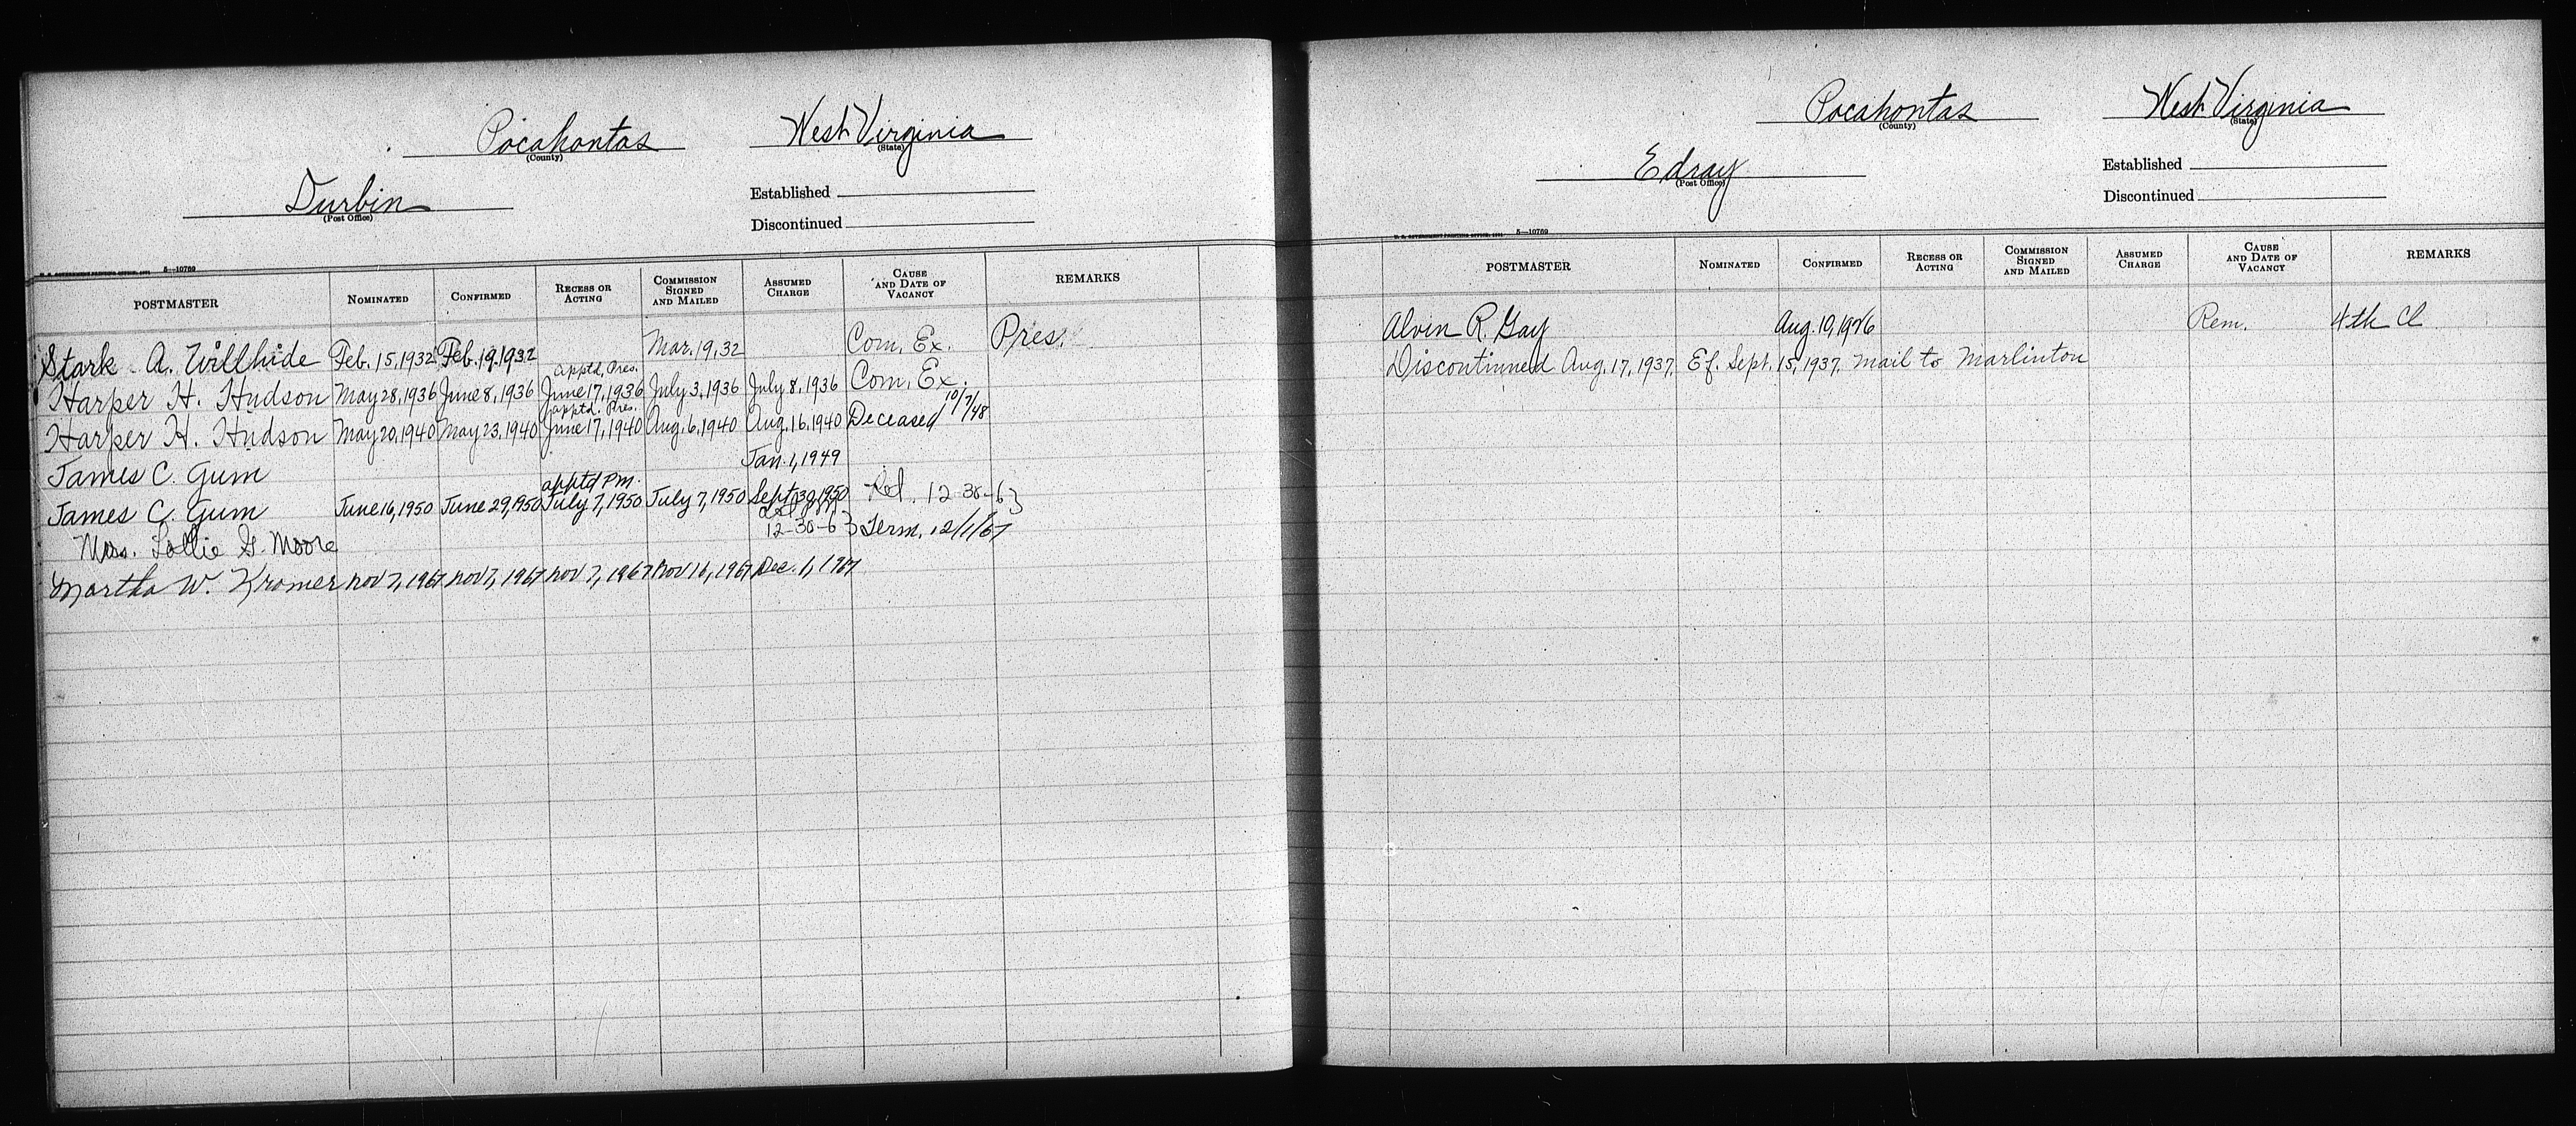 Pocahontas West Virginia
(County) (State)
Durbin
(Post Office)
Established
Discontinued
U. S. GOVERNMENT PRINTING OFFICE: 1931 5—10769
POSTMASTER NOMINATED CONFIRMED RECESS OR ACTING COMMISSION SIGNED AND MAILED ASSUMED CHARGE CAUSE AND DATE OF VACANCY REMARKS
Stark A. Willhide Feb. 15, 1932 Feb. 19. 1932 Mar. 19, 32 Com. Ex. Pres.
apptd. Pres.
Harper H. Hudson May 28, 1936 June 8, 1936 June 17, 1936 July 3, 1936 July 8, 1936 Com. Ex.
apptd. Pres.
Harper H. Hudson May 20, 1940 May 23, 1940 June 17, 1940 Aug. 6, 1940 Aug. 16, 1940 Deceased 10/7/48
James C. Gum Jan. 1, 1949
apptd Pm.
James C. Gum June 16, 1950 June 29, 1950 July 7, 1950 July 7, 1950 Sept 30, 1950 Ret. 12-30-63
Mrs. Lollie G. Moore 12-30-63 Term. 12/1/67
Martha W. Kramer Nov 7, 1967 Nov 7, 1967 Nov 7, 1967 Nov 16, 1967 Dec. 1, 1967
Pocahontas West Virginia
(County) (State)
Edray
(Post Office)
Established
Discontinued
U. S. GOVERNMENT PRINTING OFFICE: 1931 5—10769
POSTMASTER NOMINATED CONFIRMED RECESS OR ACTING COMMISSION SIGNED AND MAILED ASSUMED CHARGE CAUSE AND DATE OF VACANCY REMARKS
Alvin R. Gay Aug. 10, 1926 Rem. 4th Cl
Discontinued Aug. 17, 1937. Ef. Sept. 15, 1937. Mail to Marlinton